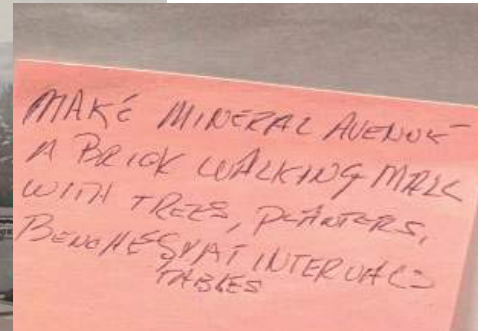 MAKE MINERAL AVENUE
A BRICK WALKING MALL
WITH TREES, PLANTERS,
BENCHES, AT INTERVALS
TABLES